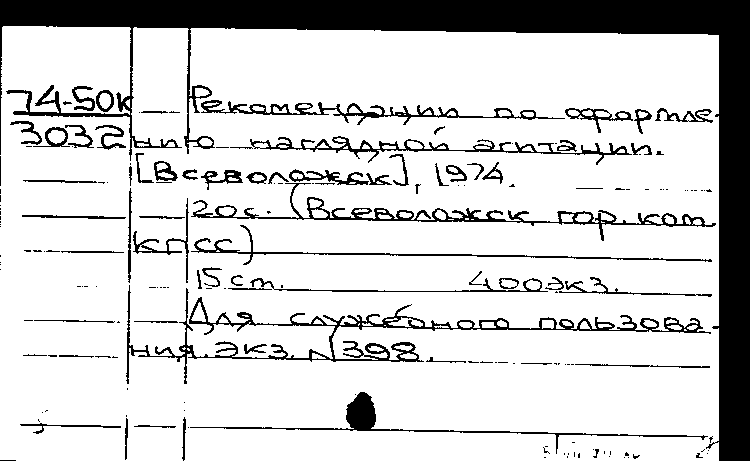 74-50к Рекомендации по оформле-
3032 нию наглядной агитации.
[Всеволожск], 1974.
20с. (Всеволожск. гор. ком.
КПСС)
15 ст. 400 экз.
Для служебного пользова-
ния. Экз. N 398.